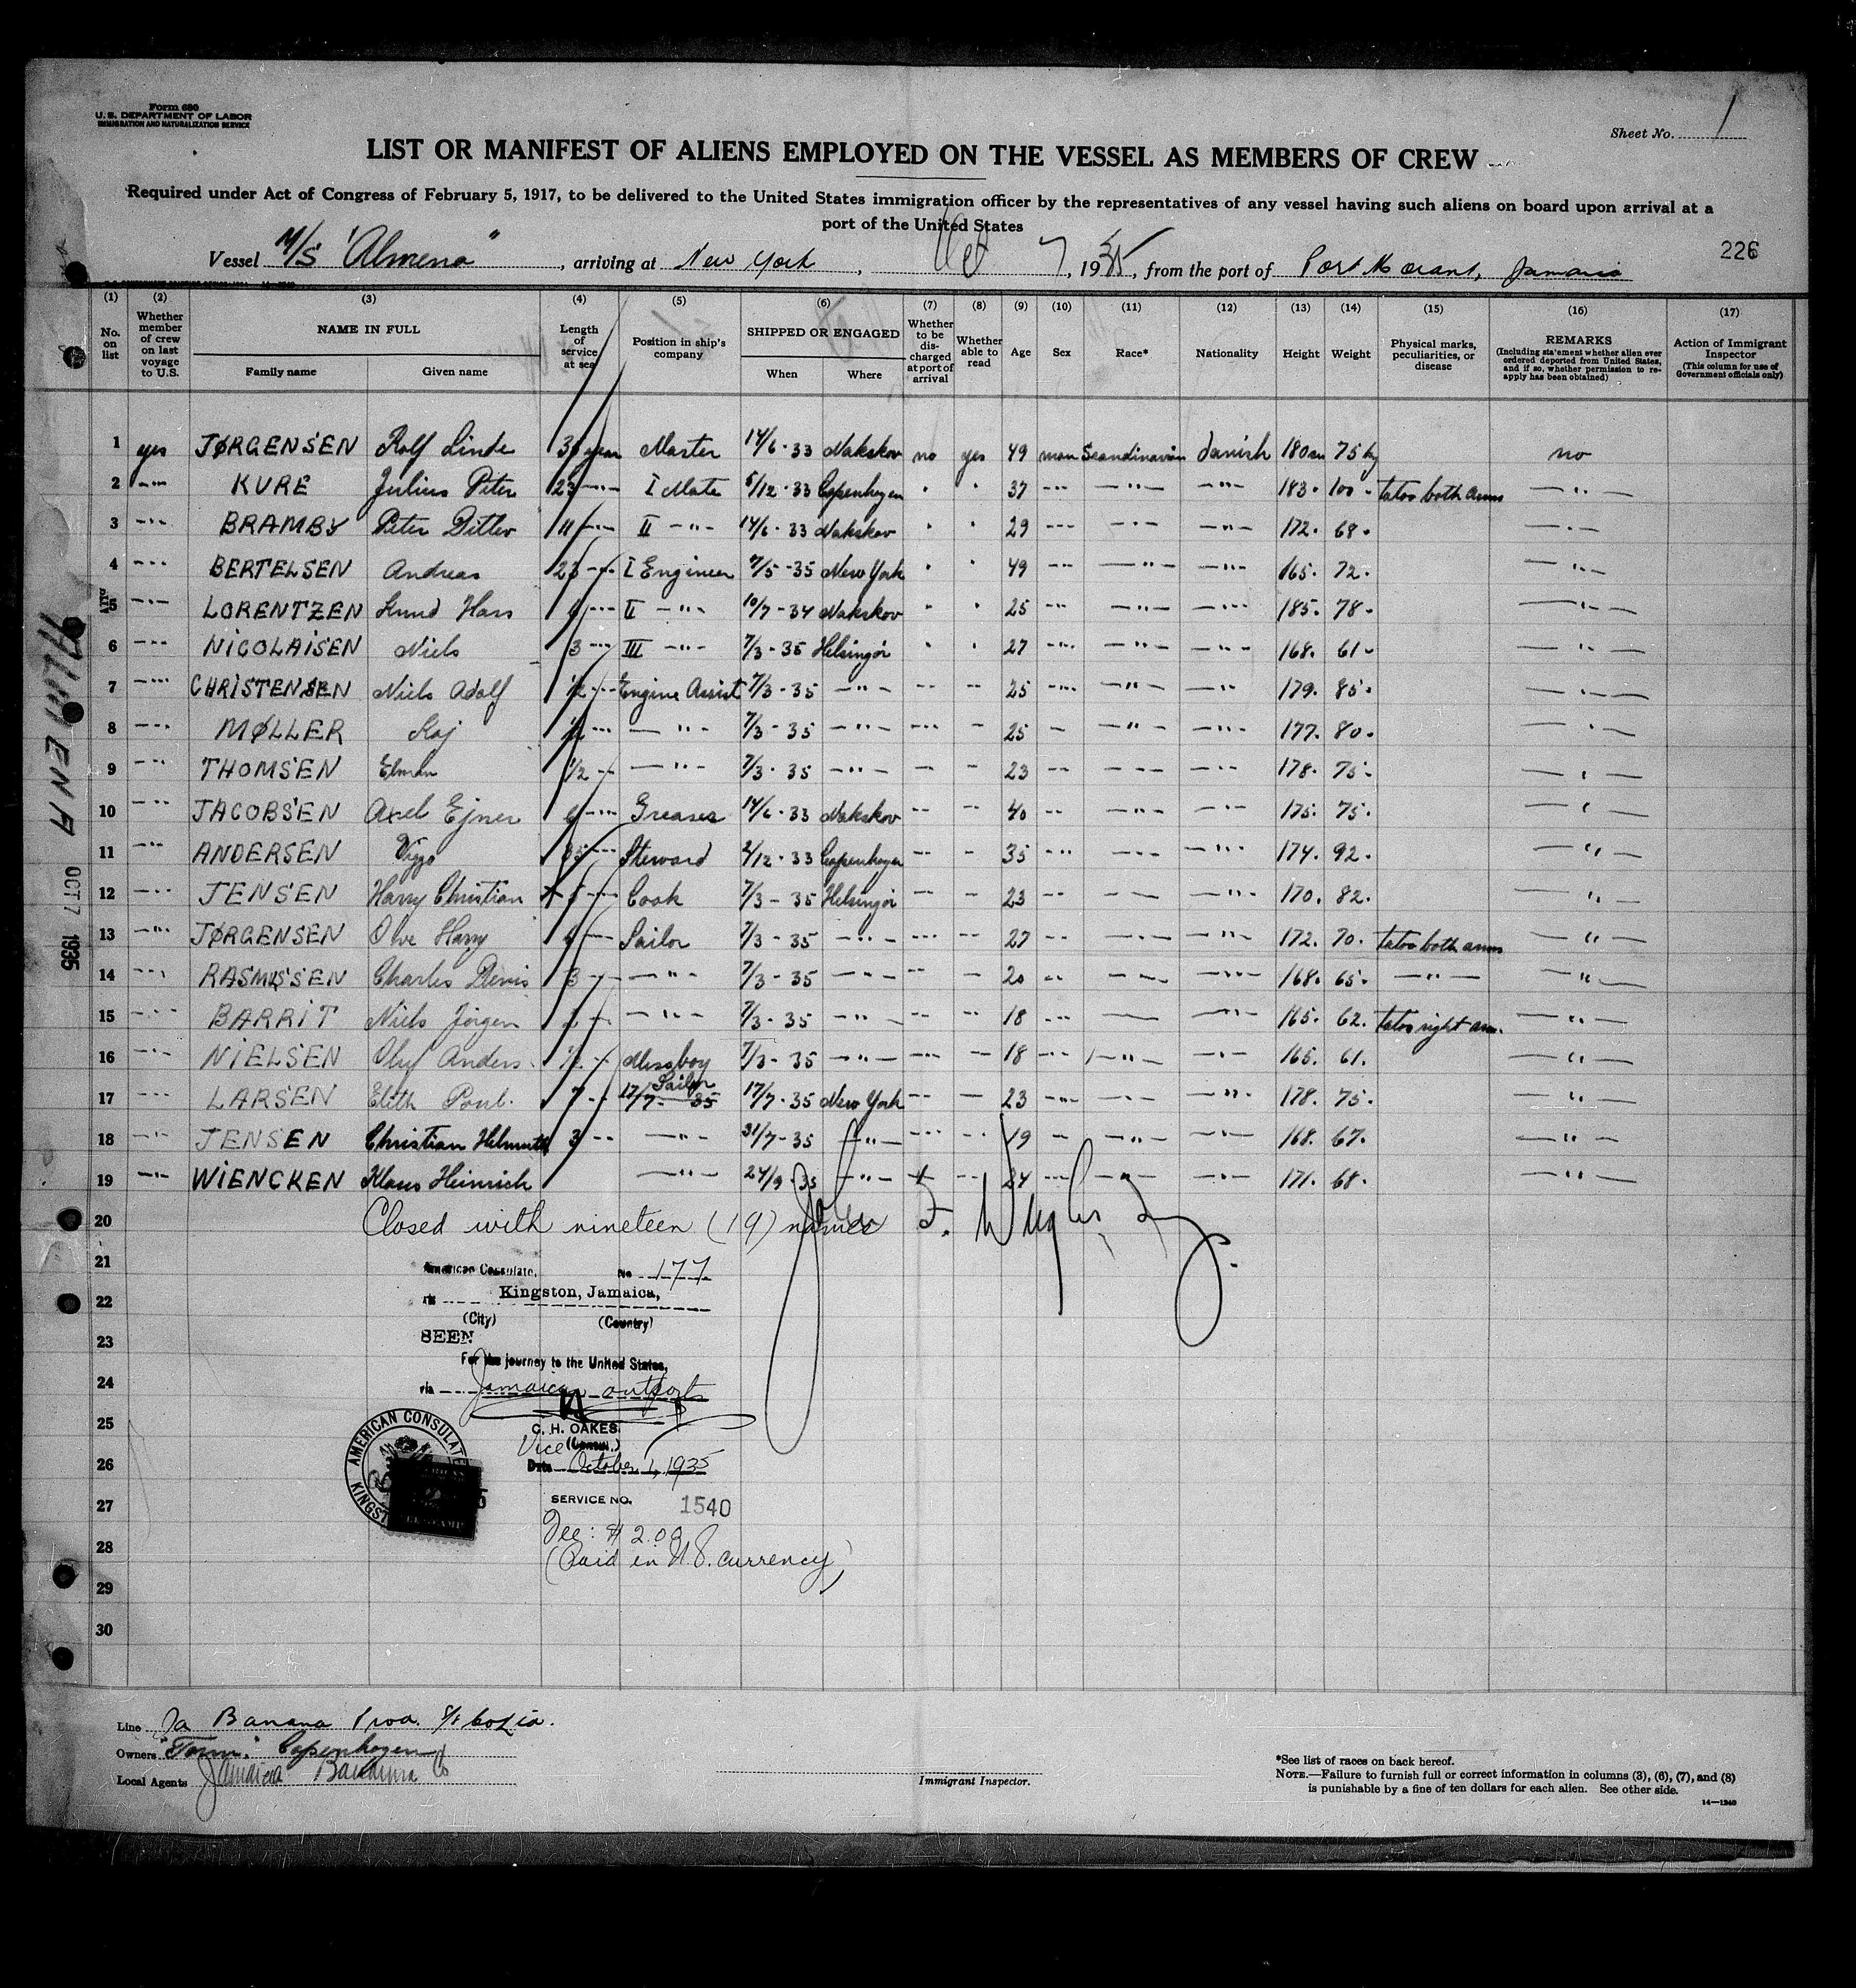 Form 680
U. S. DEPARTMENT OF LABOR
IMMIGRATION AND NATURALIZATION SERVICE
Sheet No. 1
LIST OR MANIFEST OF ALIENS EMPLOYED ON THE VESSEL AS MEMBERS OF CREW
Required under Act of Congress of February 5, 1917, to be delivered to the United States immigration officer by the representatives of any vessel having such aliens on board upon arrival at a
port of the United States
226
Vessel M/S "Almena", arriving at New York, Oct 7, 1935, from the port of Port Morant, Jamaica
(1) (2) (3) (4) (5) (6) (7) (8) (9) (10) (11) (12) (13) (14) (15) (16) (17)
No. on list
Whether member of crew on last voyage to U.S.
NAME IN FULL
Family name
Given name
Length of service at sea
Position in ship's company
SHIPPED OR ENGAGED
When
Where
Whether to be discharged at port of arrival
Whether able to read
Age
Sex
Race*
Nationality
Height
Weight
Physical marks, peculiarities, or disease
REMARKS
(Including statement whether alien ever ordered deported from United States, and if so, whether permission to reapply has been obtained)
Action of Immigrant Inspector
(This column for use of Government officials only)
1 yes JØRGENSEN Rolf Linde year Master 14/6-33 Nakskov no yes 49 man Scandinavian danish 180 cm 75 kg no
2 -"- KURE Julius Peter 23 -"- I Mate 5/12-33 Copenhagen " " 37 -"- -"- -"- 183. 100. tatoo both arms -"-
3 -"- BRAMBY Peter Ditlev 11 -"- II -"- 14/6-33 Nakskov " " 29 -"- -"- -"- 172. 68. -"-
4 -"- BERTELSEN Andreas 23 -"- I Engineer 7/5-35 New York " " 49 -"- -"- -"- 165. 72. -"-
5 -"- LORENTZEN Knud Hans -"- II -"- 10/7-34 Nakskov " " 25 -"- -"- -"- 185. 78. -"-
6 -"- NICOLAISEN Niels 3 -"- III -"- 7/3-35 Helsingör " " 27 -"- -"- -"- 168. 61. -"-
7 -"- CHRISTENSEN Niels Adolf 1/2 -"- Engine Assist 7/3-35 -"- -"- -"- 25 -"- -"- -"- 179. 85. -"-
8 -"- MØLLER Kaj 1/2 -"- -"- 7/3-35 -"- -"- - 25 - -"- -"- 177. 80. -"-
9 -"- THOMSEN Elman 1/2 -"- -"- 7/3-35 -"- -"- - 23 -"- -"- -"- 178. 75. -"-
10 -"- JACOBSEN Axel Ejner -"- Greaser 14/6-33 Nakskov -"- -"- 40 -"- -"- -"- 175. 75. -"-
11 -"- ANDERSEN Viggo -"- Steward 2/12-33 Copenhagen -"- - 35 -"- -"- -"- 174. 92. -"-
12 -"- JENSEN Harry Christian 5 -"- Cook 7/3-35 Helsingör -"- - 23 -"- - -"- 170. 82. -"-
13 -"- JØRGENSEN Ove Harry -"- Sailor 7/3-35 -"- -"- -"- 27 -"- -"- -"- 172. 70. tatoo both arms -"-
14 -"- RASMUSSEN Charles 3 -"- -"- 7/3-35 -"- -"- - 20 -"- -"- -"- 168. 65. -"- -"-
15 -"- BARRIT Niels Jörgen -"- -"- 7/3-35 -"- - - 18 -"- - -"- 165. 62. tatoo right arm. -"-
16 -"- NIELSEN Oluf Anders. -"- Messboy 7/3-35 -"- -"- - 18 -"- -"- -"- 165. 61. -"-
17 -"- LARSEN Elith Poul. 7 -"- Sailor 17/7-35 17/7-35 New York -"- - 23 -"- -"- -"- 178. 75. -"-
18 -"- JENSEN Christian Helmuth 3 -"- -"- 31/7-35 -"- -"- - 19 - -"- -"- 168. 67. -"-
19 -"- WIENCKEN Klaus Heinrich -"- 24/9-35 -"- - -"- 24 -"- -"- -"- 171. 68. -"-
20 Closed with nineteen (19) names
21
22
23
24
25
26
27
28
29
30
ALMENA OCT 7 1935
American Consulate,
No 177
at Kingston, Jamaica,
(City) (Country)
SEEN
For the journey to the United States,
via Jamaica outports
C. H. OAKES
Vice (Consul.)
Date October 1, 1935
AMERICAN CONSULATE
SERVICE NO. 1540
Fee: $2.00
(Paid in U.S. currency)
Line Ja Banana Prod.
Owners "Torm." Copenhagen
Local Agents Jamaica Banana Co
Immigrant Inspector.
*See list of races on back hereof.
NOTE.—Failure to furnish full or correct information in columns (3), (6), (7), and (8)
is punishable by a fine of ten dollars for each alien. See other side.
14—1240